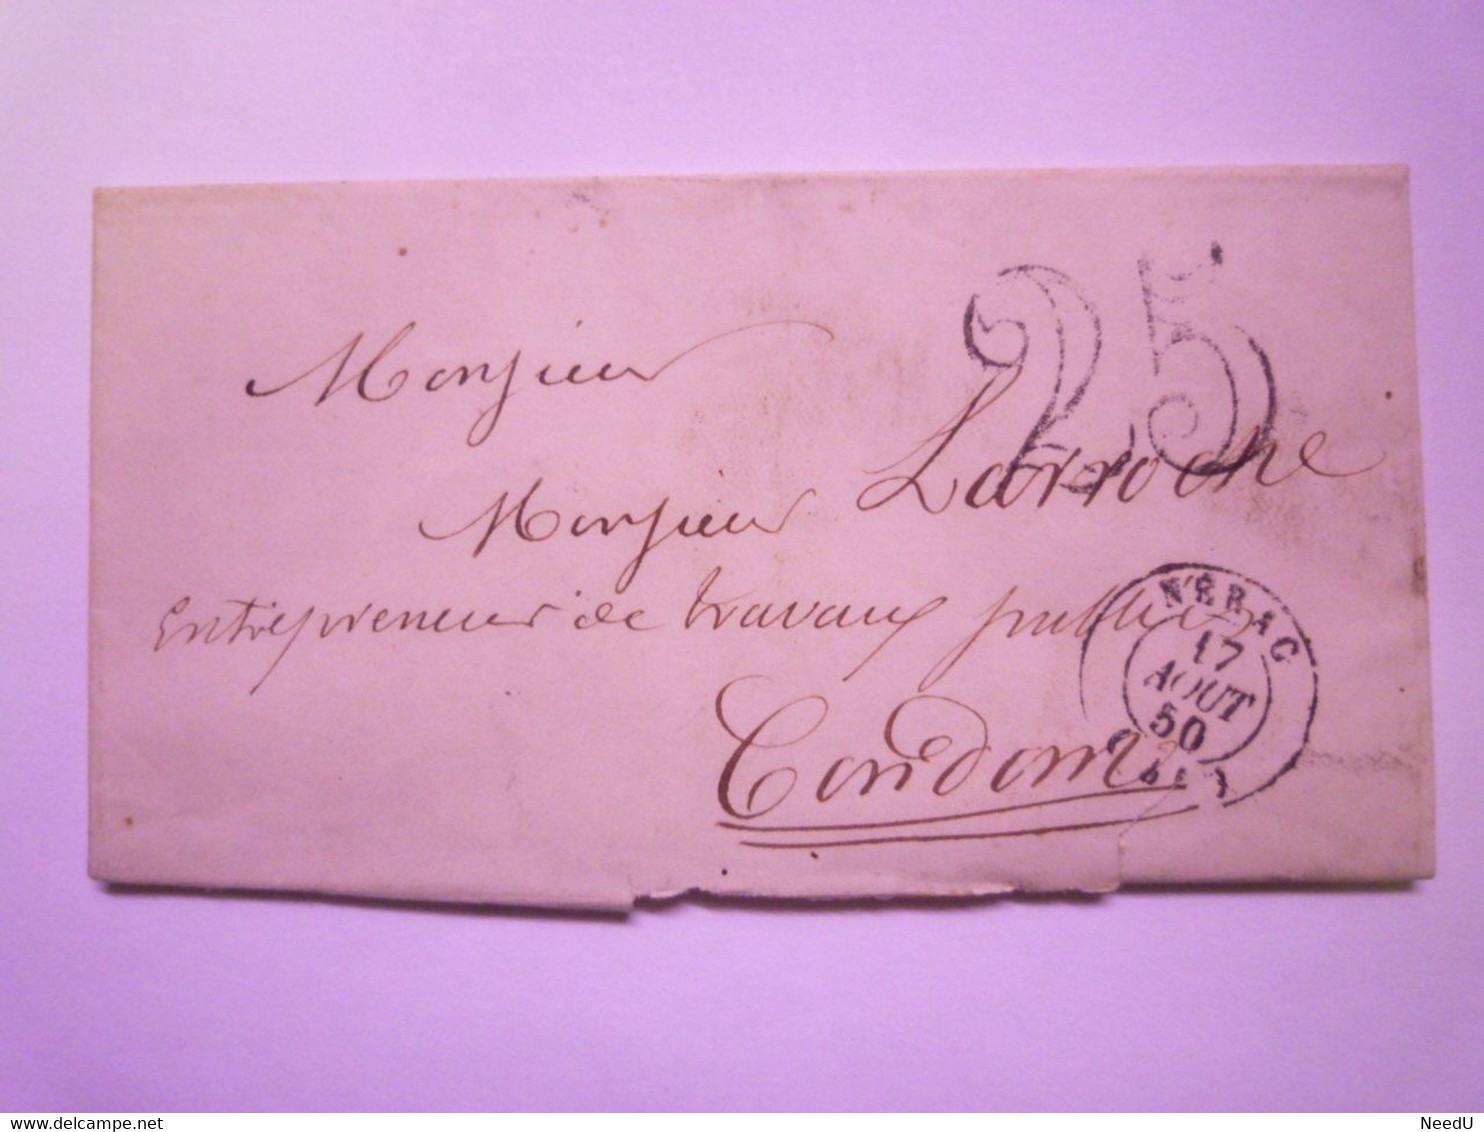 25
Monsieur
Monsieur Larroche
Entrepreneur de travaux publics
Condom
NÉRAC
17
AOUT
50
NeedU